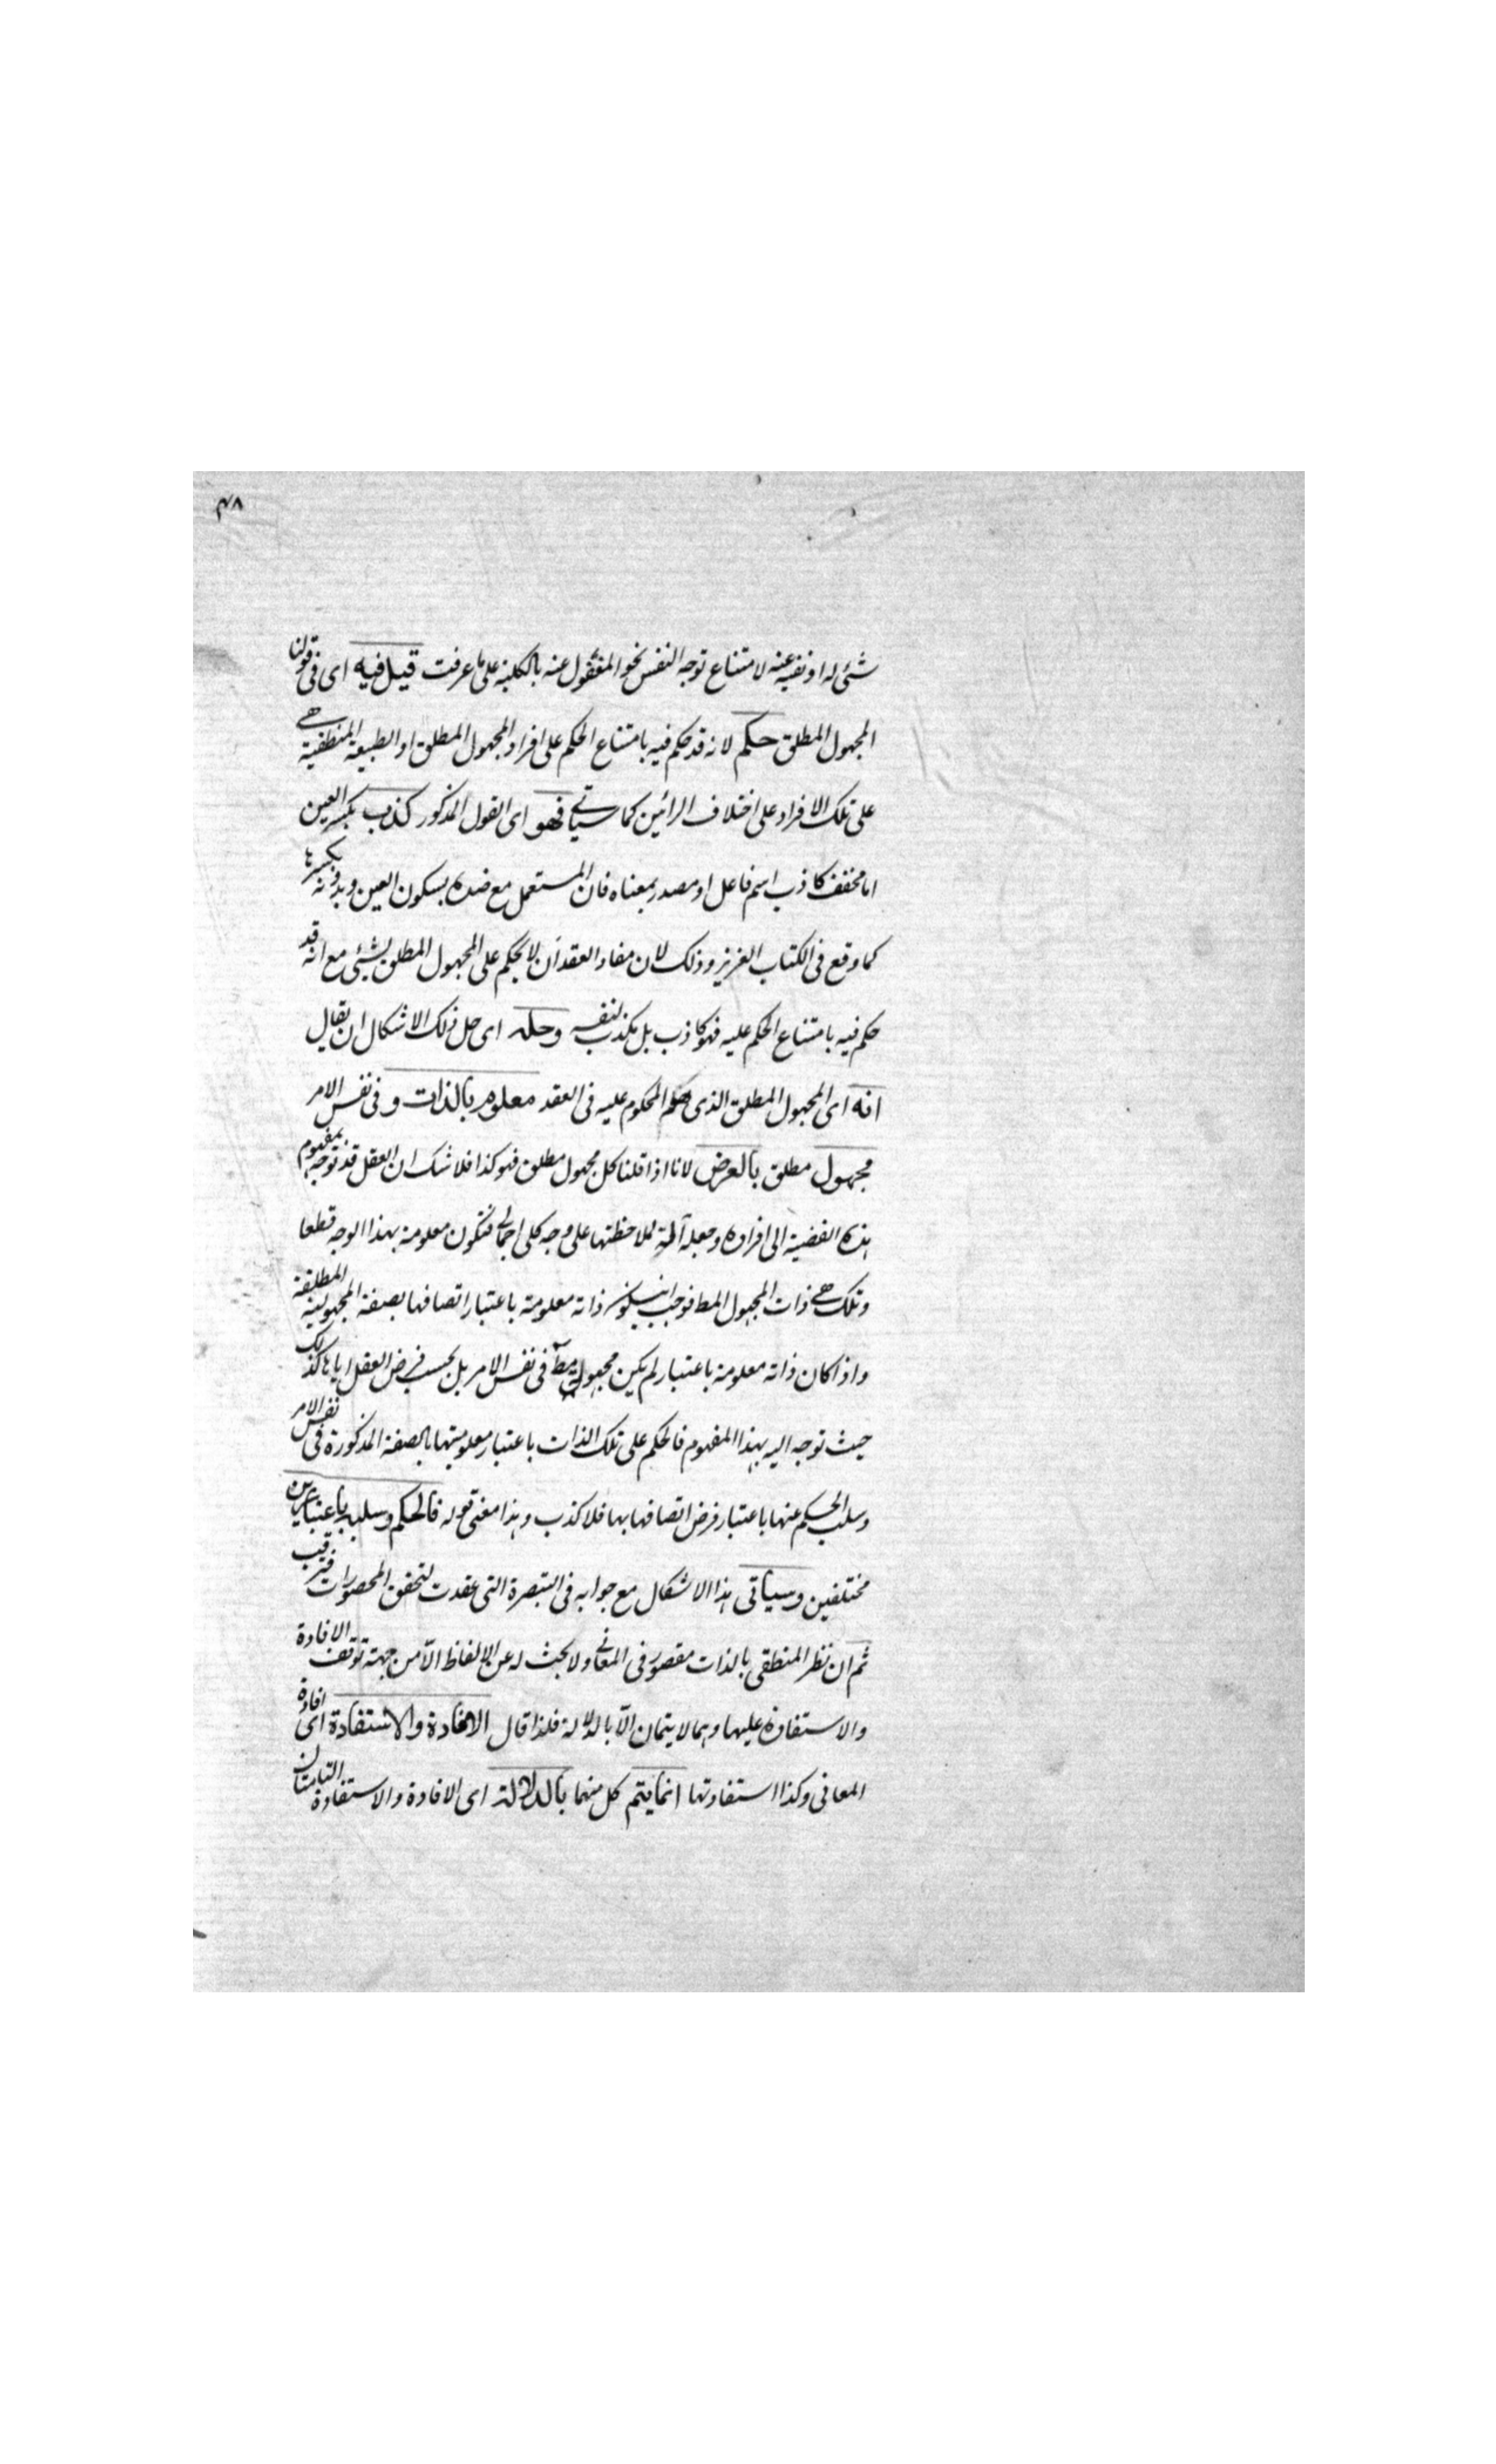 ٤٨
شئ له او نفيه عنه لامتناع توجه النفس نحو المغفول عنه بالكلية على ما عرفت قيل فيه اى فى قولنا
المجهول المطلق حكم لانه قد حكم فيه بامتناع الحكم على افراد المجهول المطلق او الطبيعة المنطبقة هى
على تلك الافراد على اختلاف الرائين كما سياتى فهو اى القول المذكور كذب بكسر العين
اما مخفف كاذب اسم فاعل او مصدر بمعناه فان المستعمل مع ضده بسكون العين وبدونه بكسرها
كما وقع فى الكتاب العزيز وذلك لان مفاد العقد ان لا يحكم على المجهول المطلق بشئ مع انه قد
حكم فيه بامتناع الحكم عليه فهو كاذب بل يكذب نفسه وحله اى حل ذلك الاشكال ان يقال
انه اى المجهول المطلق الذى المحكوم عليه فى العقد معلوم بالذات و فى نفس الامر
مجهول مطلق بالعرض لانا اذا قلنا كل مجهول مطلق فهو كذا فلا شك ان العقل قد توجه بمفهوم
هذه القضية الى افراده وجعله آلة لملاحظتها على وجه كلى اجمالى فتكون معلومة بهذا الوجه قطعا
وتلك هى ذات المجهول المط فوجب ان يكون ذاته معلومة باعتبار اتصافها بصفة المجهولية المطلقة
واذا كان ذاته معلومة باعتبار لم يكن مجهول مط فى نفس الامر بل بحسب فرض العقل اياها كذلك
حيث توجه اليه بهذا المفهوم فالحكم على تلك الذات باعتبار معلوميتها بالصفة المذكورة فى نفس الامر
وسلب الحكم عنها باعتبار فرض اتصافها بها فلا كذب وهذا معنى قوله فالحكم وسلبه باعتبارين
مختلفين وسياتى هذا الاشكال مع جوابه فى التبصرة التى عقدت لتحقق المحصورات فترقب
ثم ان نظر المنطقى بالذات مقصور فى المعانى ولا بحث له عن الالفاظ الّا من جهة توقف الافادة
والاستفادة عليها وهما لا يتمان الّا بالدلالة فلذا قال الافادة والاستفادة اى افادة
المعانى وكذا استفادتها انما يتم كل منهما بالدلالة اى الافادة والاستفادة التامتان